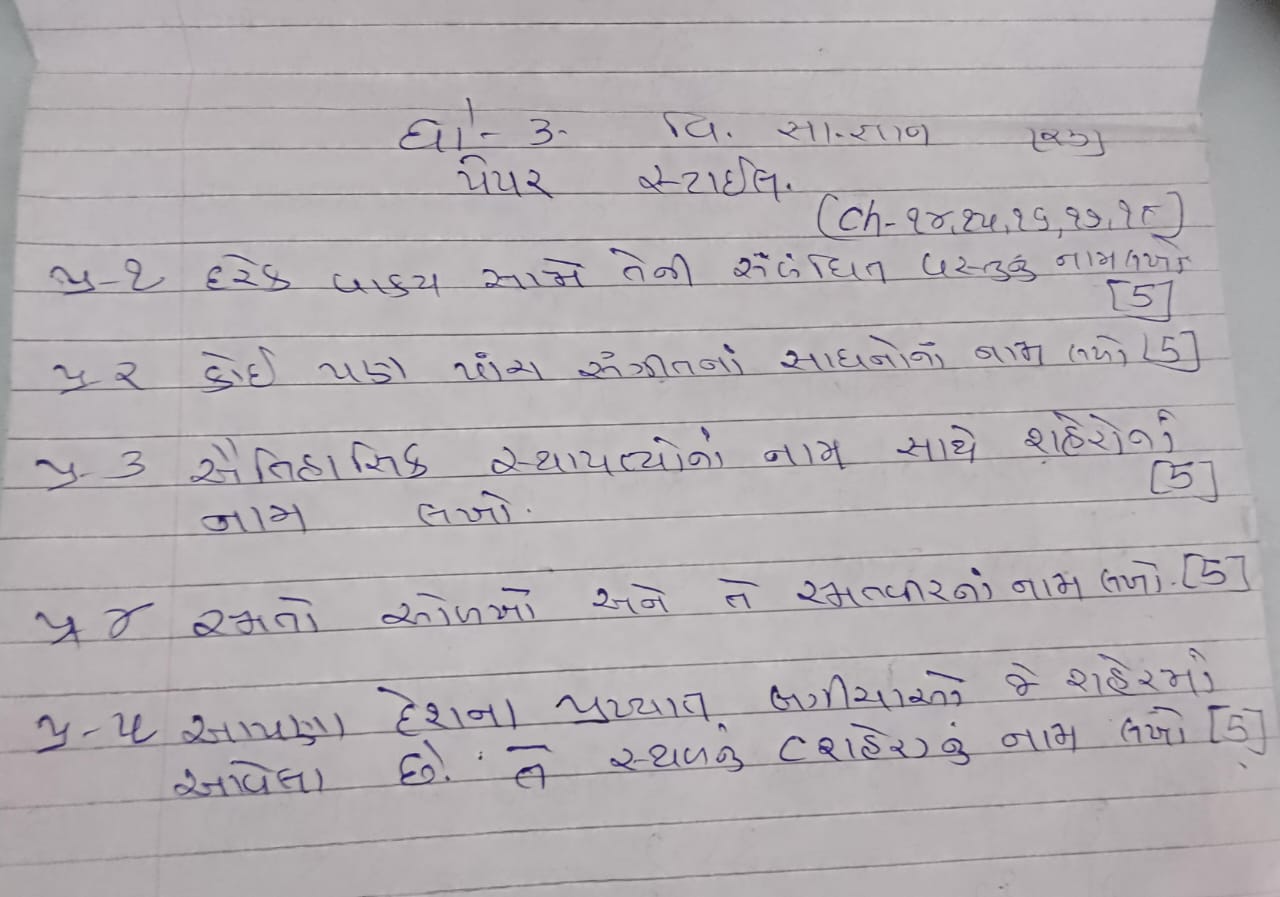 ધો - 3. વિ. સા.જ્ઞાન [૨૭]
પેપર સ્ટાઈલ.
(Ch-૧૪,૧૫,૧૬,૧૭,૧૮)
પ્ર-૧ દરેક વાક્ય સામે તેની સંબંધિત વસ્તુનું નામ લખો
[5]
પ્ર ૨ કોઈ પણ પાંચ સંગીતનાં સાધનોનાં નામ લખો [5]
પ્ર-3 ઐતિહાસિક સ્થાપત્યોનાં નામ સાથે શહેરોનાં
[5]
નામ લખો.
પ્ર ૪ રમતો ઓળખો અને તે રમતવીરનાં નામ લખો. [5]
પ્ર-૫ આપણા દેશના પ્રખ્યાત બગીચાઓ જે શહેરમાં
આવેલા છે. તે સ્થળનું (શહેર)નું નામ લખો [5]